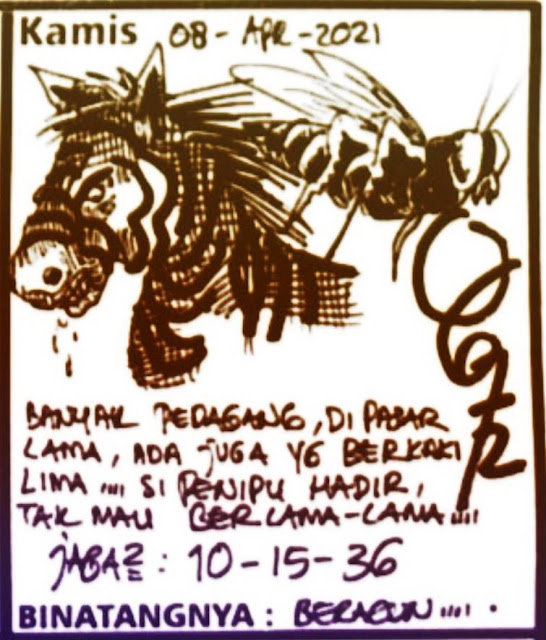 Kamis 08 - APR - 2021
BANYAK PEDAGANG, DI PASAR
LAMA, ADA JUGA YG BERKAKI
LIMA .... SI PENIPU HADIR,
TAK MAU BERLAMA-LAMA....
JAGA2 : 10 - 15 - 36
BINATANGNYA : BERACUN .... .